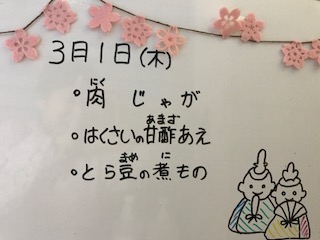 3月1日(木)
・肉じゃが
・はくさいの甘酢あえ
・とら豆の煮もの